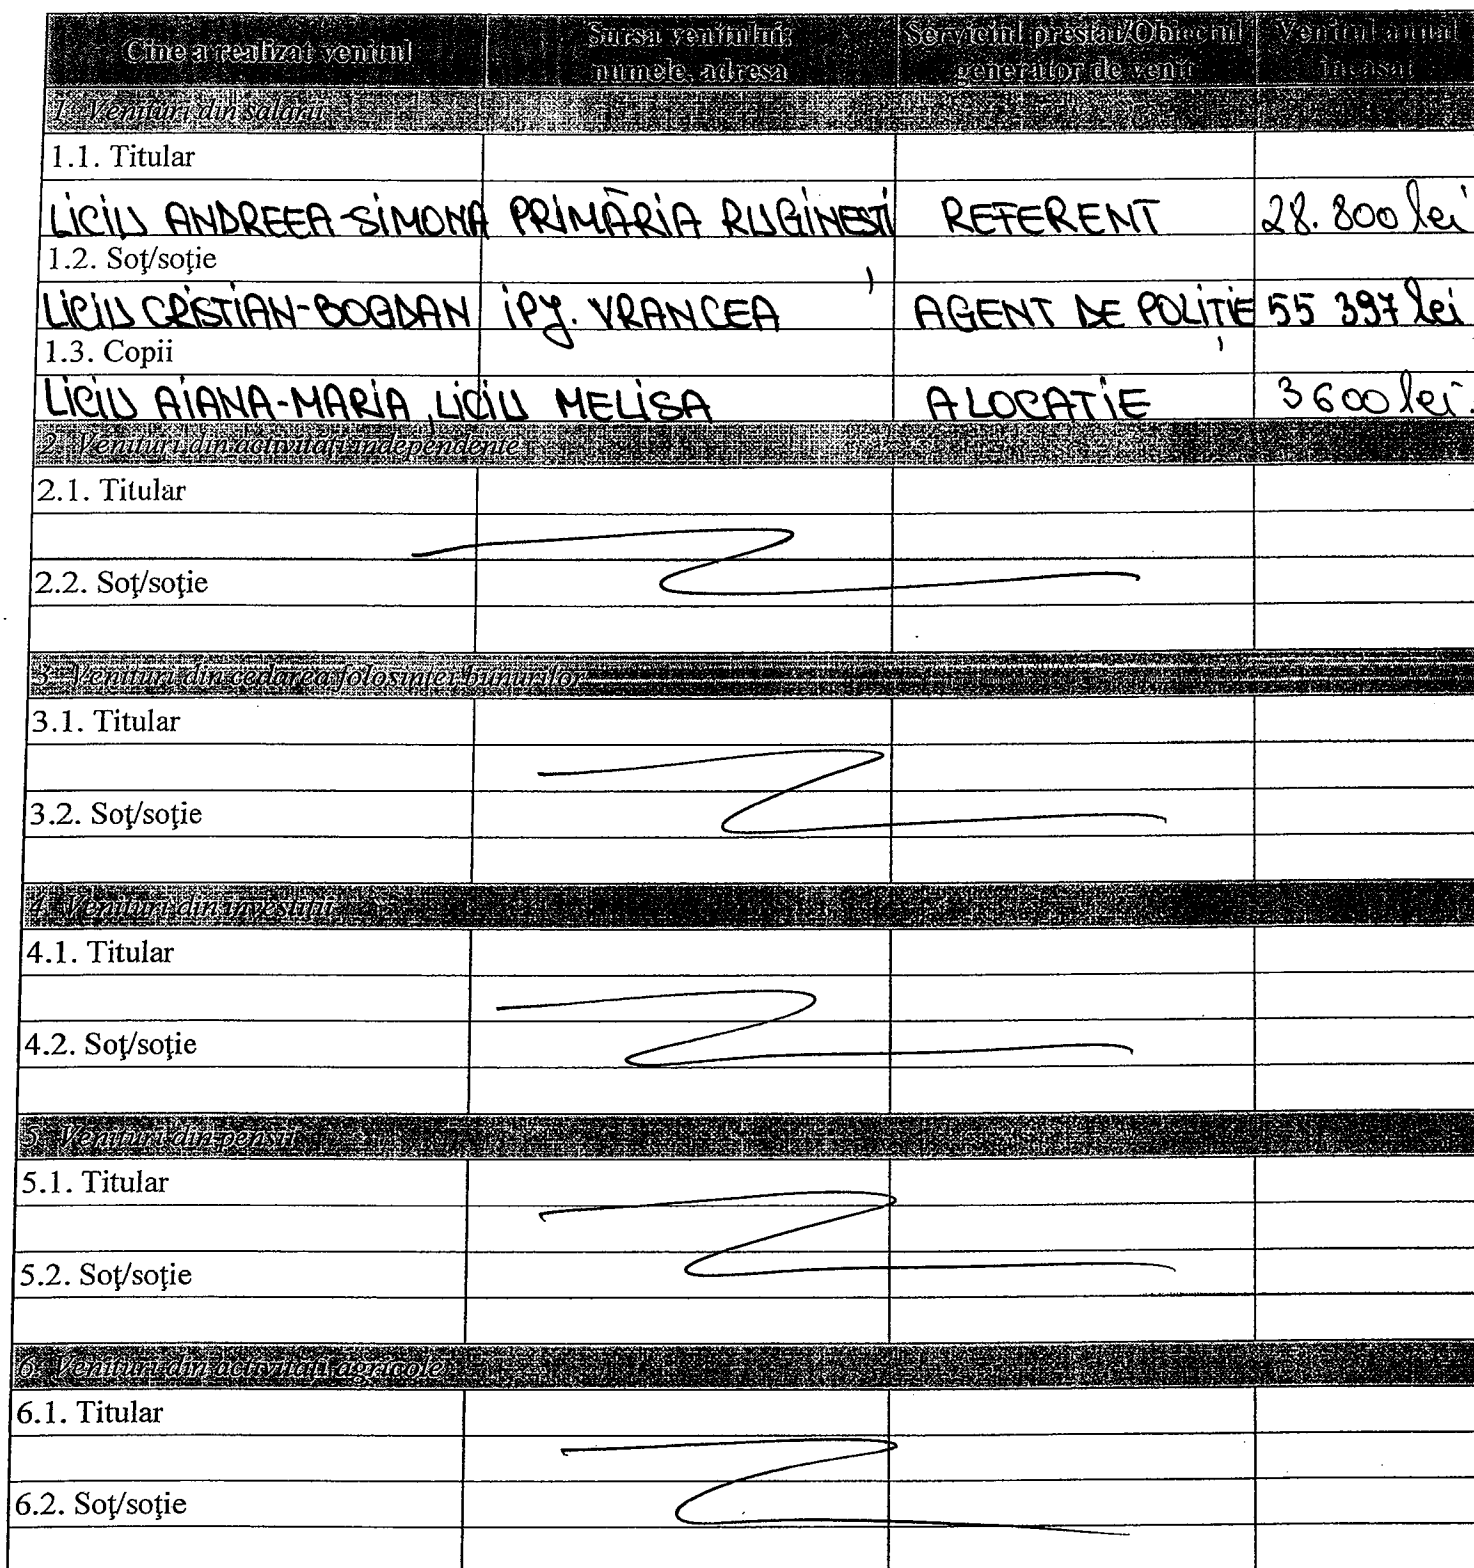 Cine a realizat venitul | Sursa venitului: numele, adresa | Serviciul prestat/Obiectul generator de venit | Venitul anual încasat
1. Venituri din salarii
1.1. Titular
LICIU ANDREEA-SIMONA | PRIMĂRIA RUGINEȘTI | REFERENT | 28.800 lei
1.2. Soţ/soţie
LICIU CRISTIAN-BOGDAN | IPJ. VRANCEA | AGENT DE POLIȚIE | 55 397 lei
1.3. Copii
LICIU AIANA-MARIA, LICIU MELISA | ALOCATIE | 3600 lei
2. Venituri din activităţi independente
2.1. Titular
2.2. Soţ/soţie
3. Venituri din cedarea folosinţei bunurilor
3.1. Titular
3.2. Soţ/soţie
4. Venituri din investiţii
4.1. Titular
4.2. Soţ/soţie
5. Venituri din pensii
5.1. Titular
5.2. Soţ/soţie
6. Venituri din activităţi agricole
6.1. Titular
6.2. Soţ/soţie